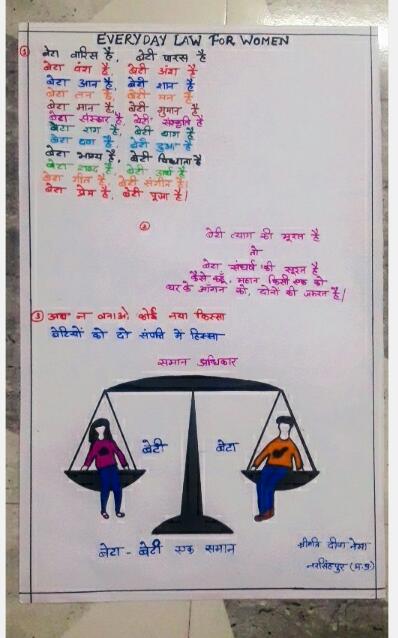 EVERYDAY LAW FOR WOMEN
① बेटा वारिस है, बेटी पारस है
बेटा वंश है, बेटी अंश है
बेटा आन है, बेटी शान है
बेटा तन है, बेटी मन है
बेटा मान है, बेटी गुमान है
बेटा संस्कार है, बेटी संस्कृति है
बेटा राग है, बेटी बाग है
बेटा दवा है, बेटी दुआ है
बेटा भाग्य है, बेटी विधाता है
बेटा शब्द है, बेटी अर्थ है
बेटा गीत है, बेटी संगीत है।
बेटा प्रेम है, बेटी पूजा है।
②
बेटी त्याग की मूरत है
तो
बेटा संघर्ष की सूरत है
कैसे कहूँ, महान किसी एक को
घर के आंगन को, दोनों की जरूरत है।
③ अब न बनाओ, कोई नया किस्सा
बेटियों को दो संपति में हिस्सा
समान अधिकार
बेटी
बेटा
बेटा - बेटी एक समान
श्रीमति दीपा नेमा
नरसिंहपुर (म.प्र)